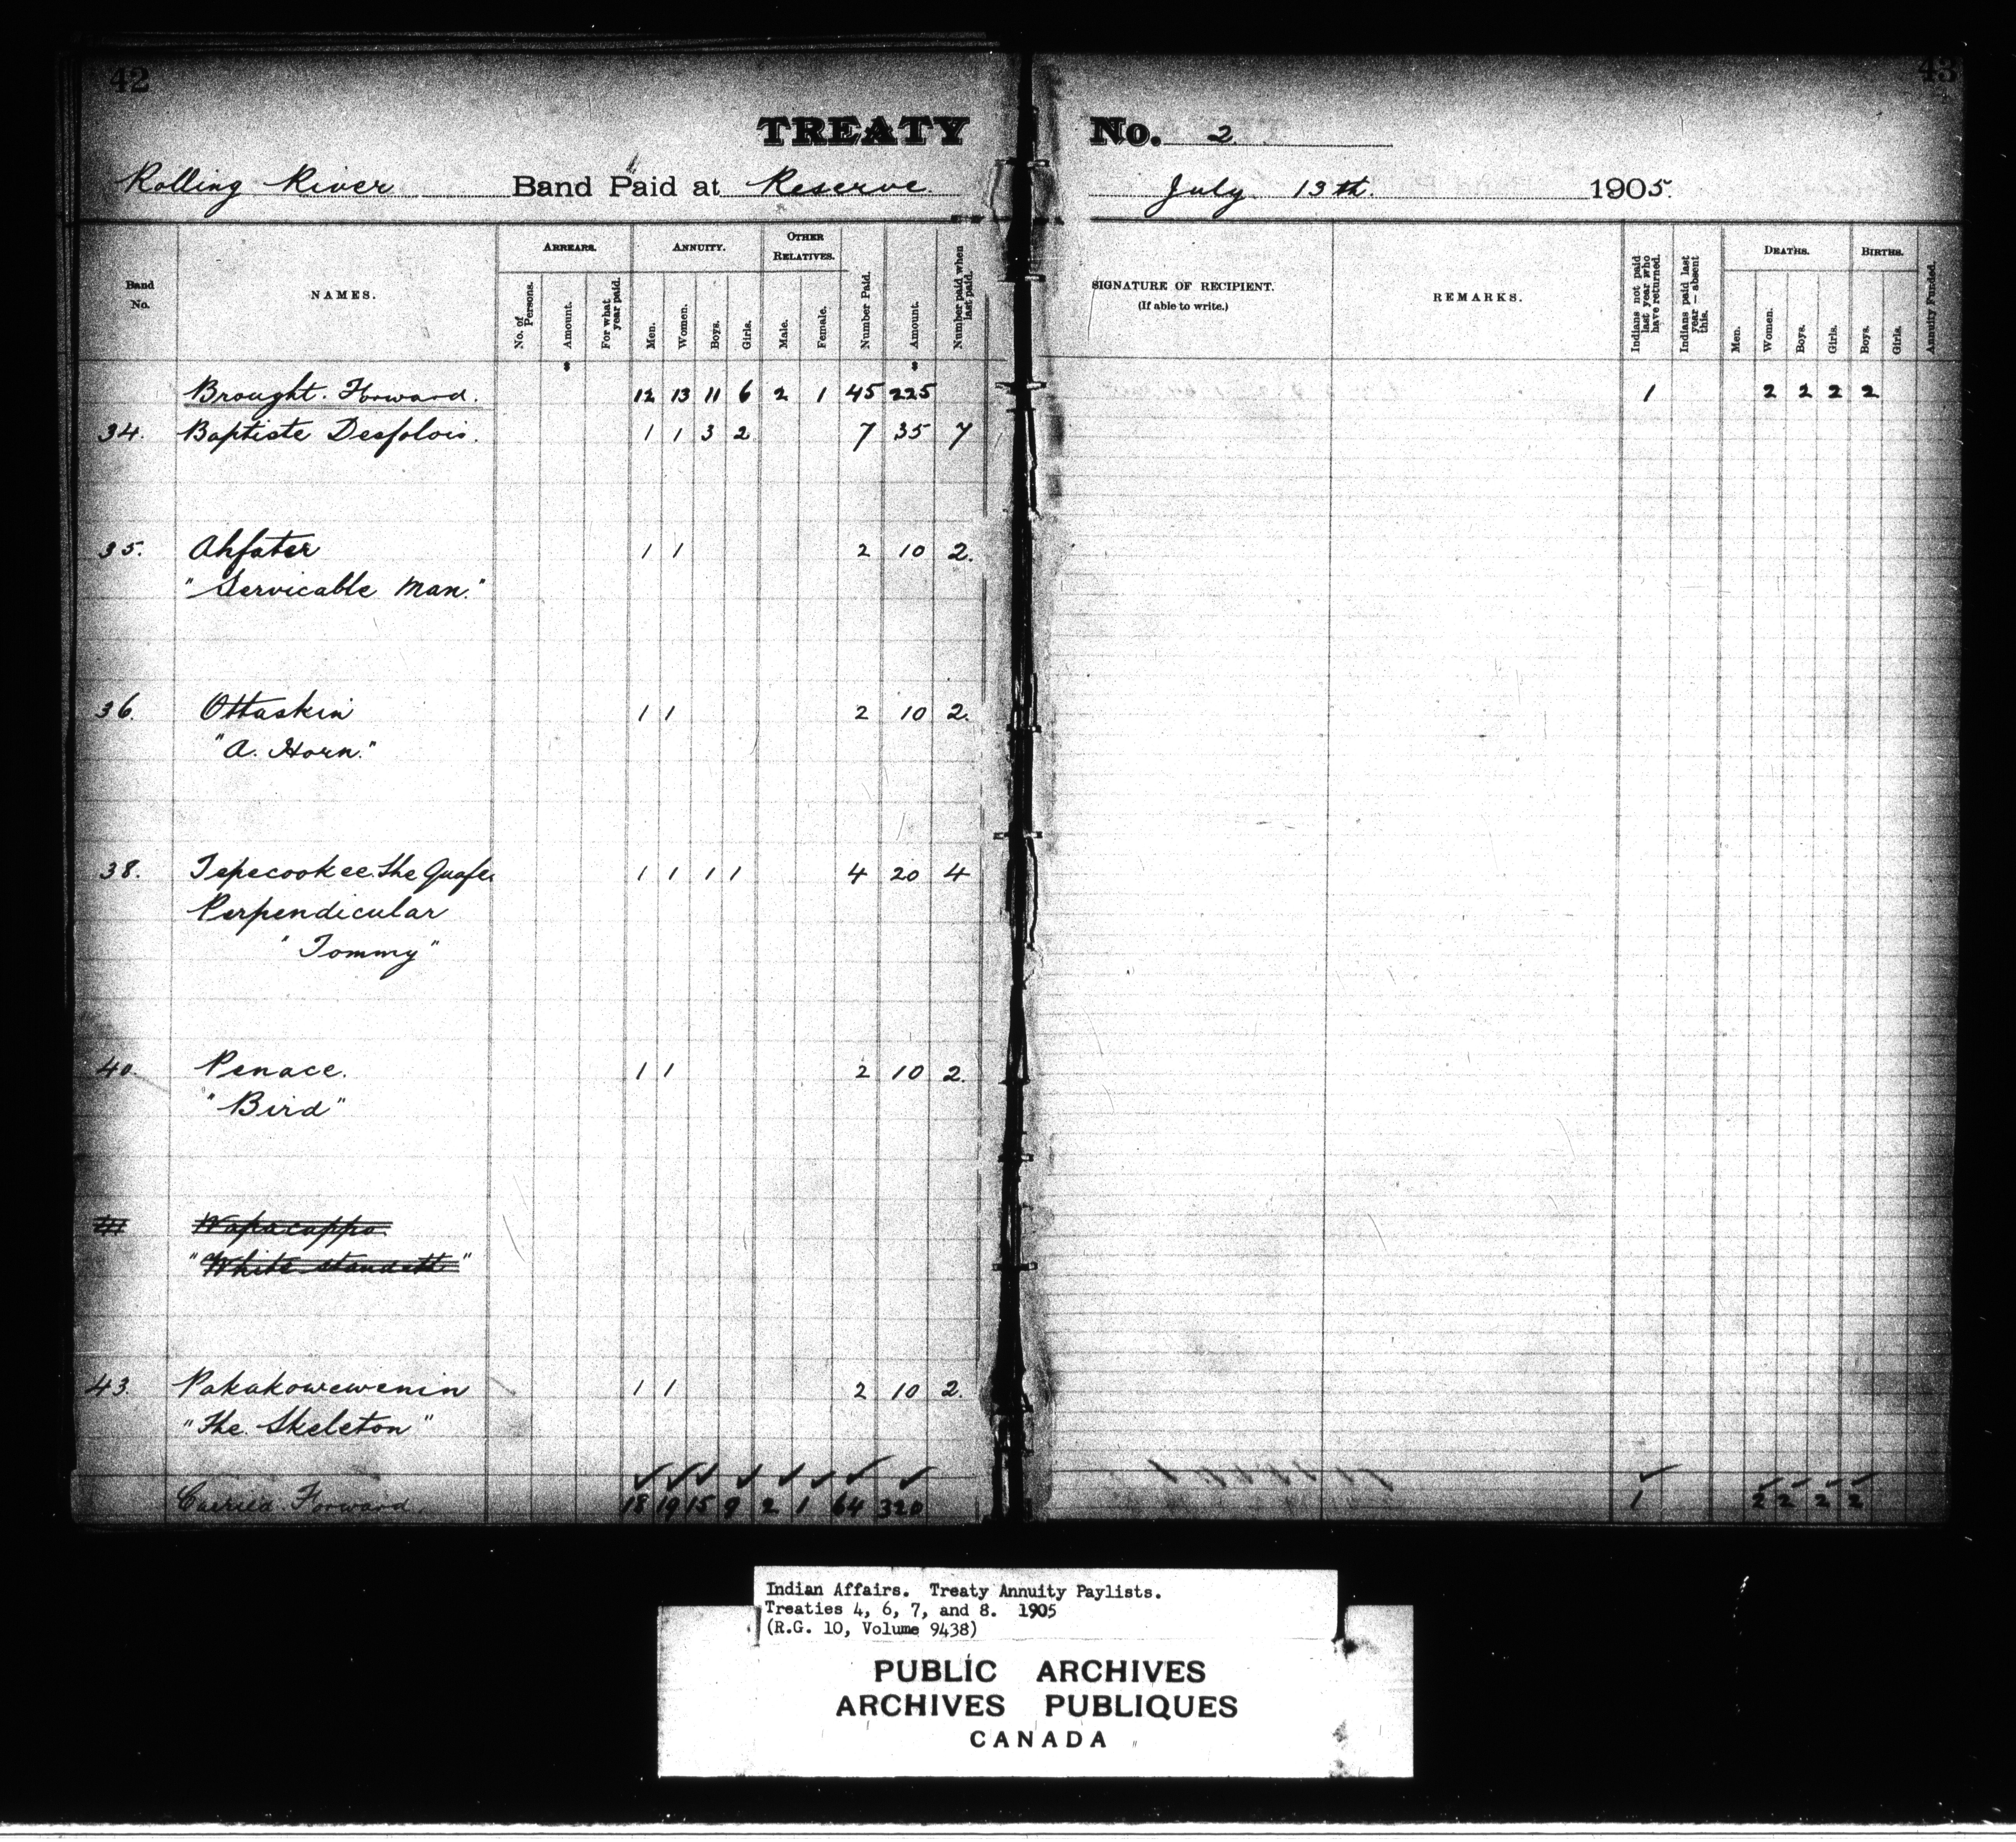 42
43
TREATY No. 2
Rolling River Band Paid at Reserve July 13th. 1905.
Band No.
NAMES.
ARREARS.
No. of Persons.
Amount.
For what year paid.
ANNUITY.
Men.
Women.
Boys.
Girls.
OTHER RELATIVES.
Male.
Female.
Number Paid.
Amount.
Number paid when last paid.
SIGNATURE OF RECIPIENT.
(If able to write.)
REMARKS.
Indians not paid last year who have returned.
Indians paid last year — absent this.
DEATHS.
Men.
Women.
Boys.
Girls.
BIRTHS.
Boys.
Girls.
Annuity Funded.
$ $
Brought Forward. 12 13 11 6 2 1 45 225 1 2 2 2 2
34. Baptiste Desjolois. 1 1 3 2 7 35 7
35. Ahfater 1 1 2 10 2.
"Servicable Man."
36. Ottaskin 1 1 2 10 2.
"A. Horn."
38. Tepecookee. The 1 1 1 1 4 20 4
Perpendicular
"Tommy"
40. Penace. 1 1 2 10 2.
"Bird"
41 Wapacappo
"White
43. Pakakowewenin 1 1 2 10 2.
"The Skeleton"
Carried Forward. 18 19 15 9 2 1 64 320 1 2 2 2 2
Indian Affairs. Treaty Annuity Paylists.
Treaties 4, 6, 7, and 8. 1905
(R.G. 10, Volume 9438)
PUBLIC ARCHIVES
ARCHIVES PUBLIQUES
CANADA